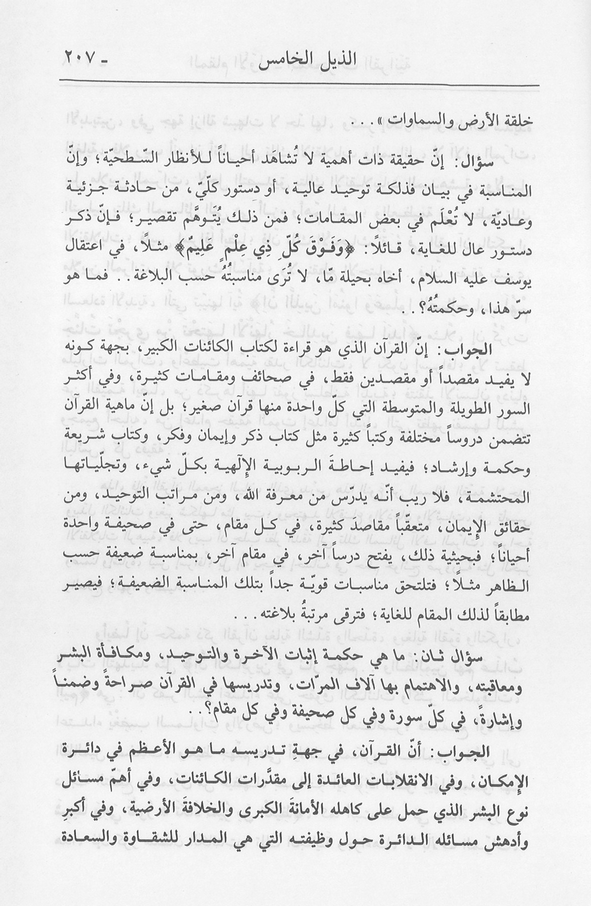 الذيل الخامس ـ ٢٠٧
خلقة الأرض والسماوات » . . .
سؤال : إنّ حقيقة ذات أهمية لا تُشاهَد أحياناً للأنظار السّطحيّة؛ وإنّ
المناسبة في بيان فذلكة توحيد عالية، أو دستور كلّيّ، من حادثة جزئية
وعاديّة، لا تُعْلَم في بعض المقامات؛ فمن ذلك يُتَوهَّم تقصير؛ فإنّ ذكر
دستور عال للغاية، قائلاً: ﴿وَفَوْقَ كُلِّ ذِي عِلْمٍ عَلِيمٌ﴾ مثلاً، في اعتقال
يوسف عليه السلام، أخاه بحيلة مّا، لا تُرَى مناسبتُهُ حسب البلاغة. . فما هو
سرّ هذا، وحكمتُهُ؟. .
الجواب: إنّ القرآن الذي هو قراءة لكتاب الكائنات الكبير، بجهة كونه
لا يفيد مقصداً أو مقصدين فقط، في صحائف ومقامات كثيرة، وفي أكثر
السور الطويلة والمتوسطة التي كلّ واحدة منها قرآن صغير؛ بل إنّ ماهية القرآن
تتضمن دروساً مختلفة وكتباً كثيرة مثل كتاب ذكر وإيمان وفكر، وكتاب شريعة
وحكمة وإرشاد؛ فيفيد إحاطَةَ الربوبية الإلٓهية بكلّ شيء، وتجلّياتها
المحتشمة، فلا ريب أنّه يدرّس من معرفة الله، ومن مراتب التوحيد، ومن
حقائق الإيمان، متعقّباً مقاصدَ كثيرة، في كل مقام، حتى في صحيفة واحدة
أحياناً؛ فبحيثية ذلك، يفتح درساً آخر، في مقام آخر، بمناسبة ضعيفة حسب
الظاهر مثلاً؛ فتلتحق مناسبات قويّة جداً بتلك المناسبة الضعيفة؛ فيصير
مطابقاً لذلك المقام للغاية؛ فترقى مرتبةُ بلاغته. . .
سؤال ثان: ما هي حكمة إثبات الآخرة والتوحيد، ومكافأة البشر
ومعاقبته، والاهتمام بها آلاف المرّات، وتدريسها في القرآن صراحةً وضمناً
وإشارةً، في كلّ سورة وفي كل صحيفة وفي كل مقام؟. .
الجواب: أنّ القرآن، في جهةِ تدريسه ما هو الأعظم في دائرة
الإمكان، وفي الانقلابات العائدة إلى مقدَّرات الكائنات، وفي أهمّ مسائل
نوع البشر الذي حمل على كاهله الأمانةَ الكبرى والخلافة الأرضية، وفي أكبرِ
وأدهش مسائله الدائرة حول وظيفته التي هي المدار للشقاوة والسعادة